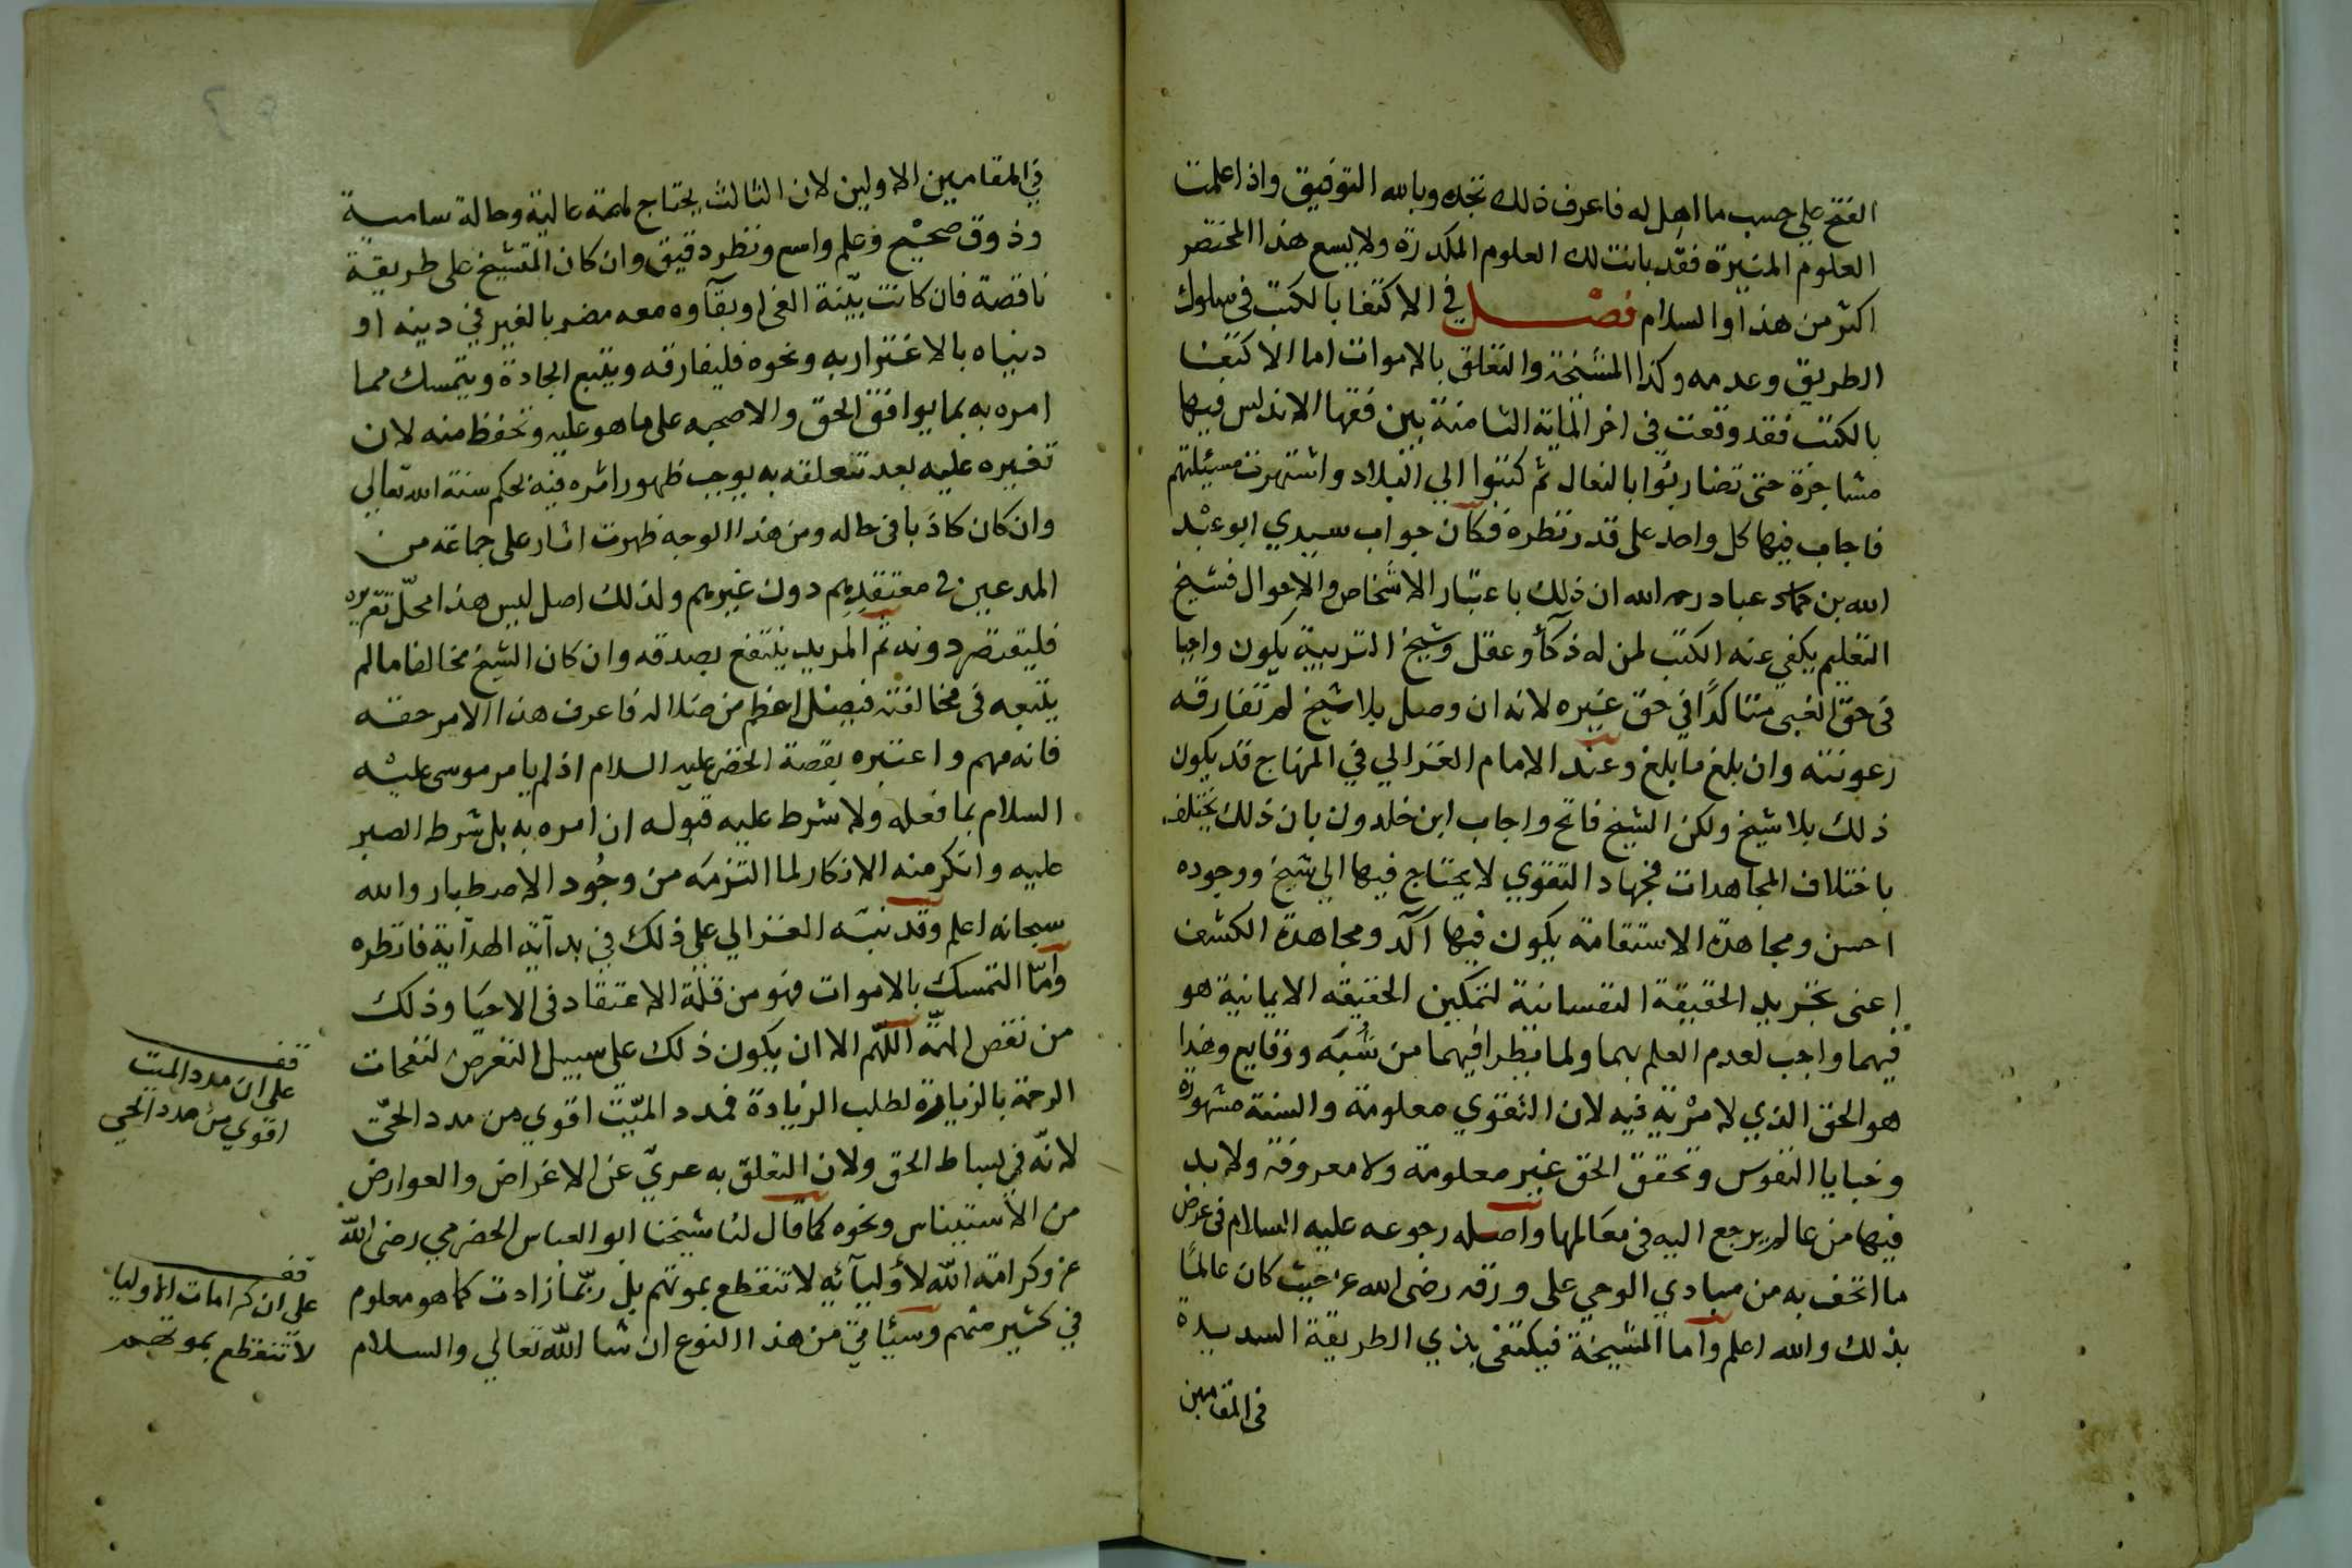 الفتح علي حسب ما اهل له فاعرف ذلك تجده وبالله التوفيق واذا علمت
العلوم المنيرة فقد بانت لك العلوم المكدرة ولا يسع هذا المختصر
اكثر من هذا والسلام فصل في الاكتفا بالكتب في سلوك
الطريق وعدمه وكذا المشيخة والتعلق بالاموات اما الاكتفا
بالكتب فقد وقعت في اخر الماية الثامنة بين فقها الاندلس فيها
مشاجرة حتى تضاربوا بالنعال ثم كتبوا الي البلاد واشتهرت مسيلتهم
فاجاب فيها كل واحد على قدر نظره فكان جواب سيدي ابو عبد
الله بن عباد رحمه الله ان ذلك باعتبار الاشخاص والاحوال فشيخ
التعليم يكفي عنه الكتب لمن له ذكآ وعقل وشيخ التربية يكون واجبا
في حق الغبي متاكدًا في حق غيره لانه ان وصل بلا شيخ لم تفارقه
رعونته وان بلغ ما بلغ وعند الامام الغزالي في المنهاج قد يكون
ذلك بلا شيخ ولكن الشيخ فاتح واجاب ابن خلدون بان ذلك يختلف
باختلاف المجاهدات فجهاد التقوي لا يحتاج فيها الي شيخ ووجوده
احسن ومجاهدة الاستقامة يكون فيها اكد ومجاهدة الكشف
اعنى تجريد الحقيقة النفسانية لتمكين الحقيقه الايمانية هو
فيهما واجب لعدم العلم بهما ولما يطرا فيهما من شبه ووقايع وهذا
هو الحق الذي لا مرية فيه لان التقوي معلومة والسنة مشهورة
وخبايا النفوس وتحقق الحق غير معلومة ولا معروفة ولا بد
فيها من عالم يرجع اليه في معالمها واصله رجوعه عليه السلام في عرض
ما اتحف به من مبادي الوحي على ورقه رضى الله عنه حيث كان عالمًا
بذلك والله اعلم واما المشيخة فيكتفى بذي الطريقة السديدة
في المقامين
في المقامين الاولين لان الثالث يحتاج لهمة عالية وحالة سامية
وذوق صحيح وعلم واسع ونظر دقيق وان كان المتشيخ على طريقة
ناقصة فان كانت بيّنة الغى وبقآوه معه مضر بالغير في دينه او
دنياه بالاغترار به ونحوه فليفارقه ويتبع الجادة ويتمسك مما
امره به بما يوافق الحق والا صحبه على ما هو عليه وتحفظ منه لان
تغيره عليه بعد تعلقه به يوجب ظهور اثره فيه بحكم سنة الله تعالي
وان كان كاذبا في حاله ومن هذا الوجه ظهرت اثار على جماعة من
المدعين في معتقديهم دون غيرهم ولذلك اصل ليس هذا محلّ تقريره
فليقتصر دونه ثم المريد ينتفع بصدقه وان كان الشيخ مخالفا ما لم
يتبعه في مخالفته فيضل اعظم من ضلاله فاعرف هذا الامر حقه
فانه مهم واعتبره بقصة الخضر عليه السلام اذ لم يامر موسى عليه
السلام بما فعله ولا شرط عليه قبوله ان امره به بل شرط الصبر
عليه وانكر منه الانكار لما التزمه من وجُود الاصطبار والله
سبحانه اعلم وقد نبّه الغزالي علي ذلك في بدآية الهدآية فانظره
وامّا التمسك بالاموات فهو من قلة الاعتقاد في الاحيا وذلك
من نقص الهمّة اللّهم الا ان يكون ذلك على سبيل التعرض لنفحات
الرحمة بالزيارة لطلب الزيادة فمدد الميّت اقوي من مدد الحيّ
لانّه في بساط الحق ولان التعلق به عريّ عن الاغراض والعوارض
من الاستيناس ونحوه كما قال لنا شيخنا ابو العباس الحضرمي رضى اللّه
عنه وكرامة اللّه لاوليآئه لا تنقطع بموتهم بل ربّما زادت كما هو معلوم
في كثير منهم وسيئاتي من هذا النوع ان شا اللّه تعالي والسلام
قف
على ان مدد الميت
اقوي من مدد الحي
قف
على ان كرامات الاوليا
لا تنقطع بموتهم